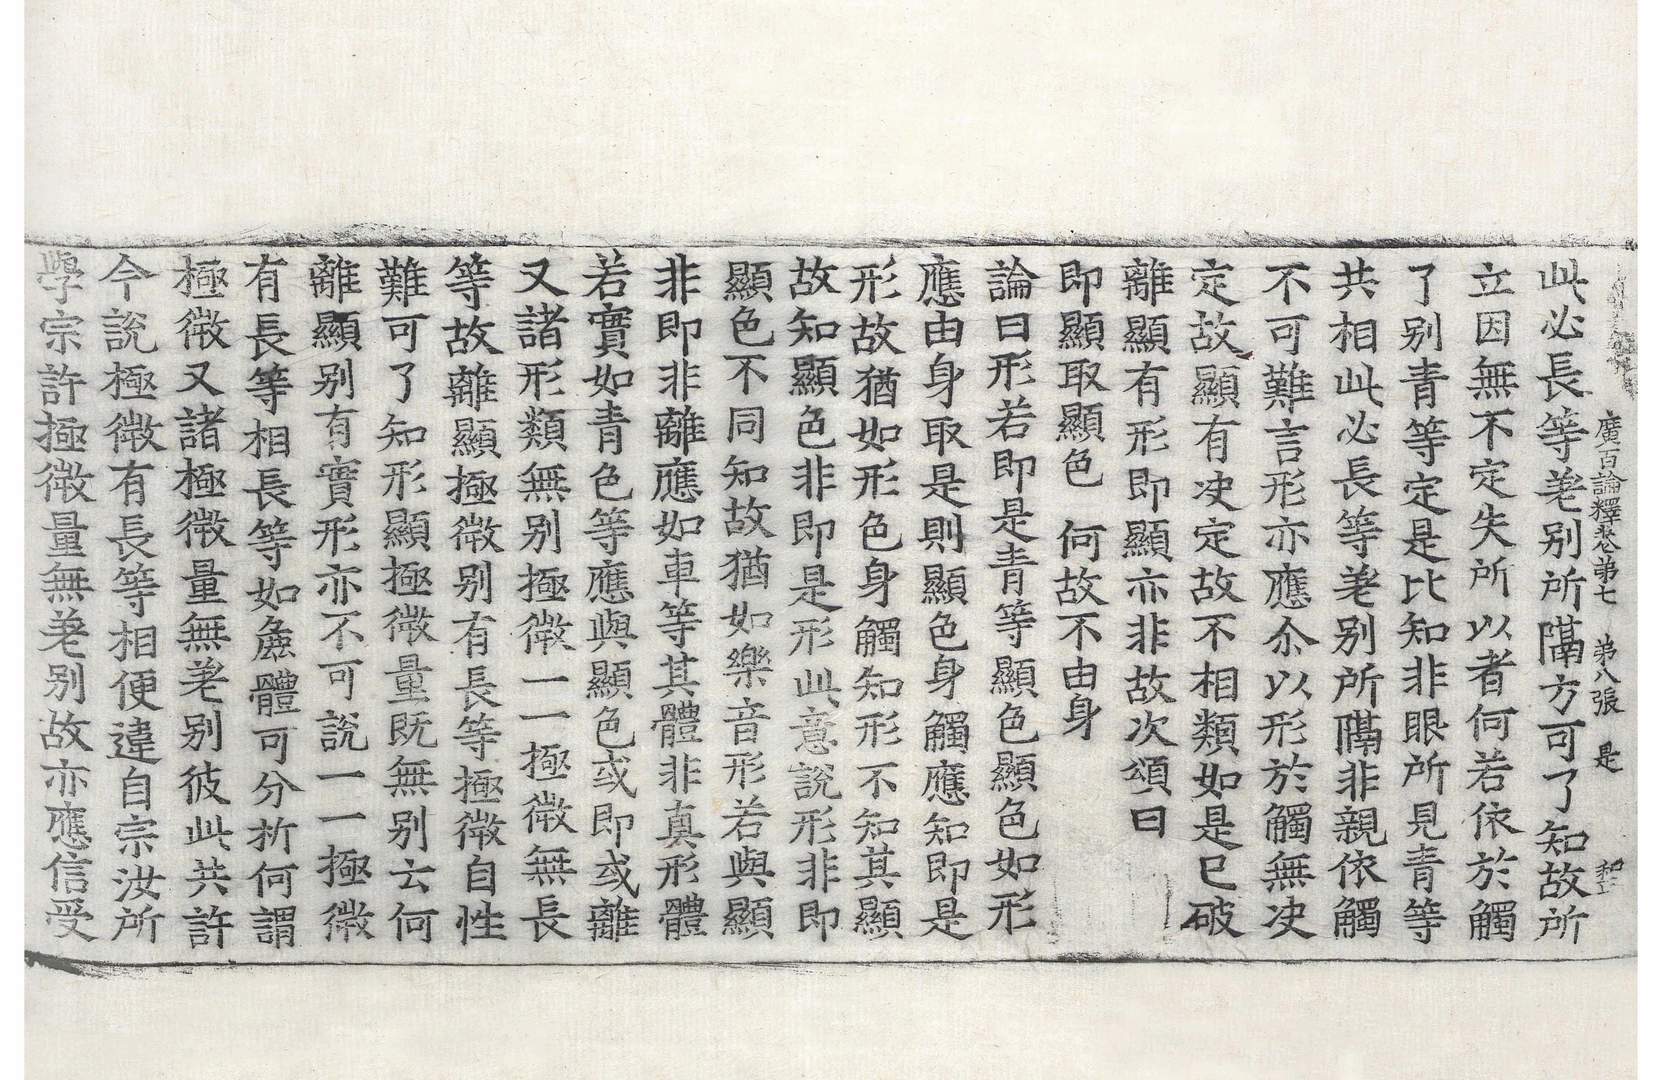 廣百論釋卷第七 第八張 是
此必長等差别所隔方可了知故所
立因無不定失所以者何若依於觸
了别青等定是比知非眼所見青等
共相此必長等差别所隔非親依觸
不可難言形亦應尒以形於觸無决
定故顯有决定故不相類如是已破
離顯有形即顯亦非故次頌曰
即顯取顯色 何故不由身
論曰形若即是青等顯色顯色如形
應由身取是則顯色身觸應知即是
形故猶如形色身觸知形不知其顯
故知顯色非即是形此意說形非即
顯色不同知故猶如樂音形若與顯
非即非離應如車等其體非真形體
若實如青色等應與顯色或即或離
又諸形類無别極微一一極微無長
等故離顯極微别有長等極微自性
難可了知形顯極微量既無别云何
離顯别有實形亦不可說一一極微
有長等相長等如麁體可分析何謂
極微又諸極微量無差别彼此共許
今說極微有長等相便違自宗汝所
學宗許極微量無差别故亦應信受